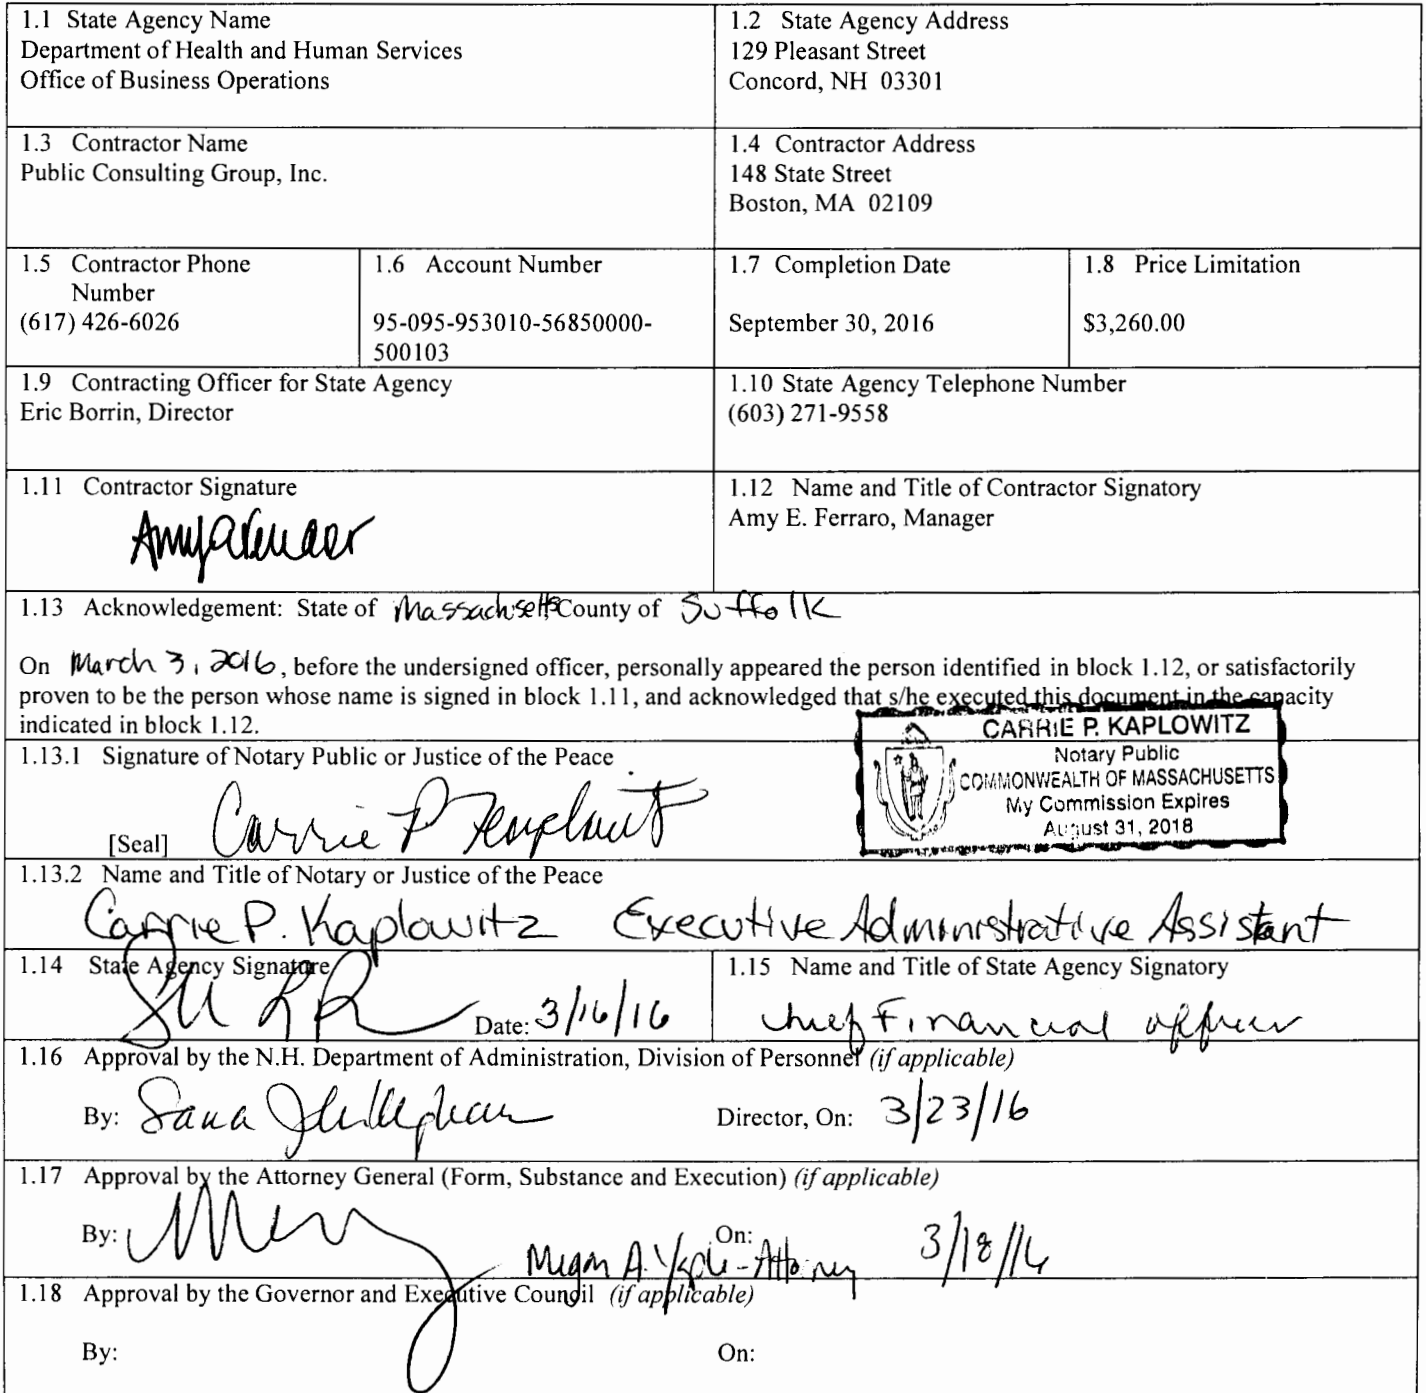 1.1 State Agency Name
Department of Health and Human Services
Office of Business Operations
1.2 State Agency Address
129 Pleasant Street
Concord, NH 03301
1.3 Contractor Name
Public Consulting Group, Inc.
1.4 Contractor Address
148 State Street
Boston, MA 02109
1.5 Contractor Phone
Number
(617) 426-6026
1.6 Account Number
95-095-953010-56850000-
500103
1.7 Completion Date
September 30, 2016
1.8 Price Limitation
$3,260.00
1.9 Contracting Officer for State Agency
Eric Borrin, Director
1.10 State Agency Telephone Number
(603) 271-9558
1.11 Contractor Signature
1.12 Name and Title of Contractor Signatory
Amy E. Ferraro, Manager
1.13 Acknowledgement: State of Massachsetts County of Suffolk
On March 3, 2016, before the undersigned officer, personally appeared the person identified in block 1.12, or satisfactorily
proven to be the person whose name is signed in block 1.11, and acknowledged that s/he executed this document in the capacity
indicated in block 1.12.
CARRIE P. KAPLOWITZ
Notary Public
COMMONWEALTH OF MASSACHUSETTS
My Commission Expires
August 31, 2018
1.13.1 Signature of Notary Public or Justice of the Peace
[Seal] Carrie P Kaplowitz
1.13.2 Name and Title of Notary or Justice of the Peace
Carrie P. Kaplowitz Executive Administrative Assistant
1.14 State Agency Signature
Date: 3/16/16
1.15 Name and Title of State Agency Signatory
Chief Financial officer
1.16 Approval by the N.H. Department of Administration, Division of Personnel (if applicable)
By: Director, On: 3/23/16
1.17 Approval by the Attorney General (Form, Substance and Execution) (if applicable)
By: On: 3/18/16
Megan A. - Attorney
1.18 Approval by the Governor and Executive Council (if applicable)
By: On: